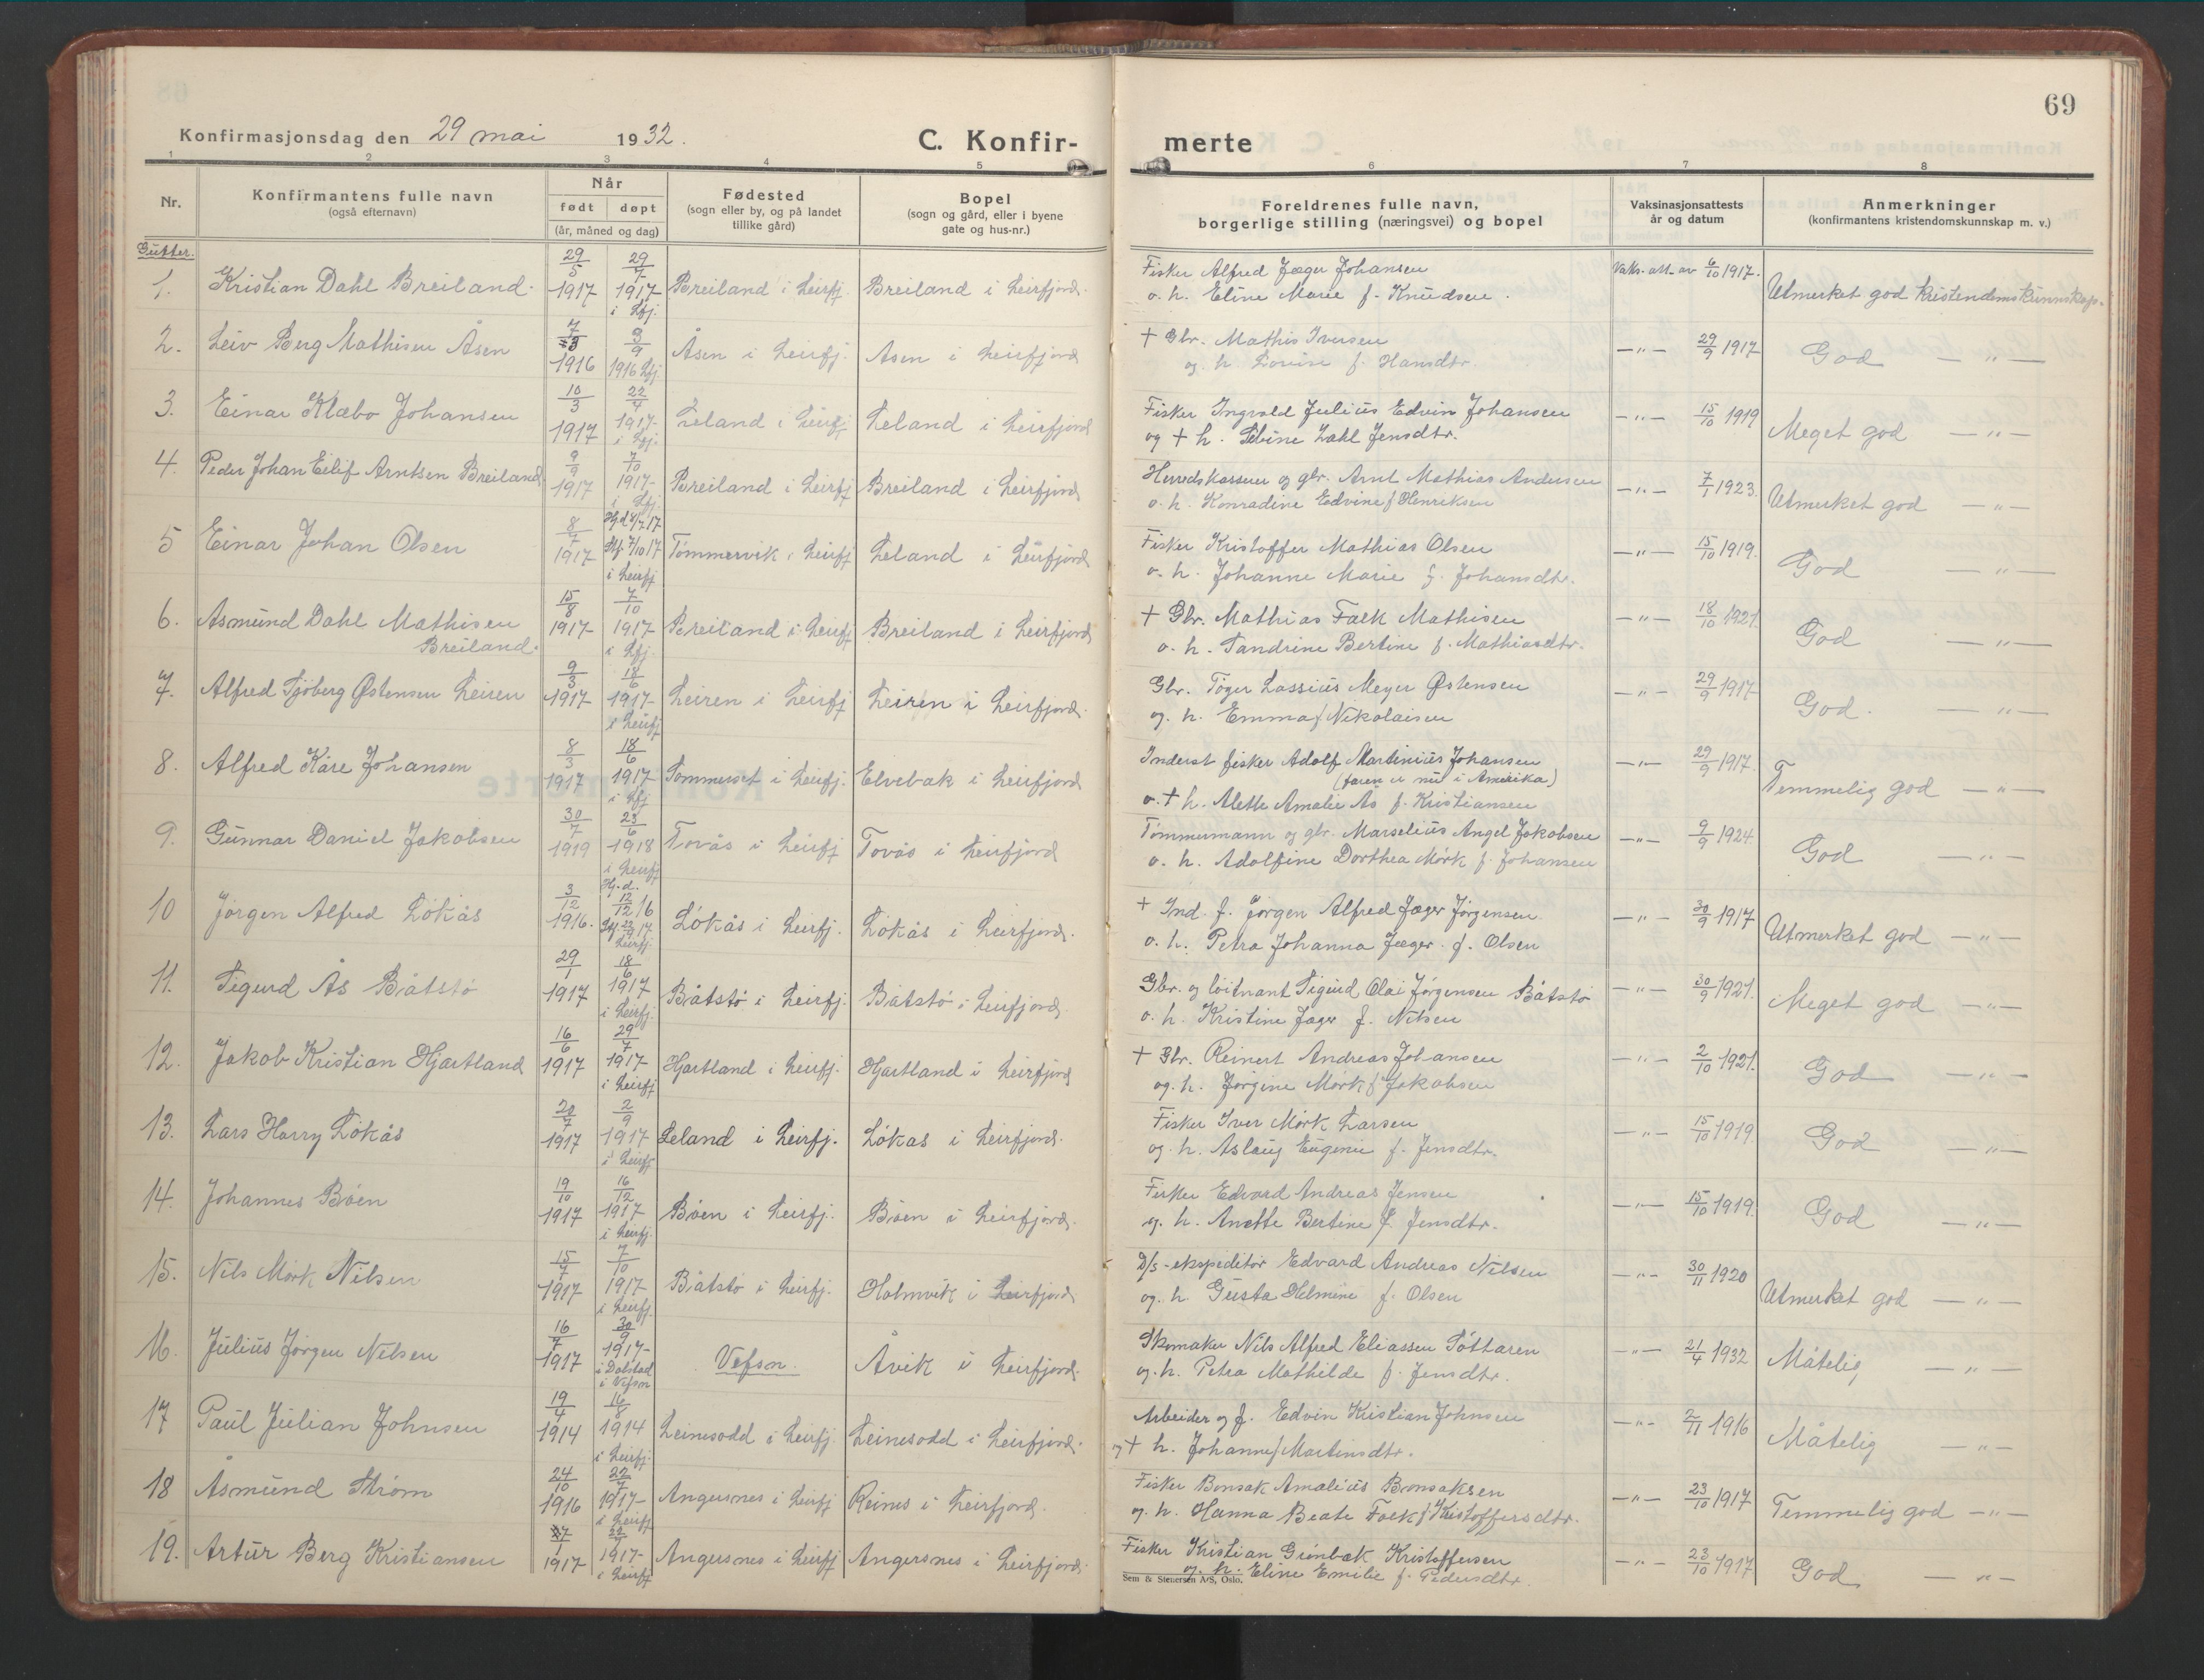 69
Konfirmasjonsdag den 29 mai 1932.
C. Konfir-
merte
1 2 3 4 5 6 7 8
Nr.
Konfirmantens fulle navn
(også efternavn)
Når
født døpt
(år, måned og dag)
Fødested
(sogn eller by, og på landet
tillike gård)
Bopel
(sogn og gård, eller i byene
gate og hus-nr.)
Foreldrenes fulle navn,
borgerlige stilling (næringsvei) og bopel
Vaksinasjonsattests
år og datum
Anmerkninger
(konfirmantens kristendomskunnskap m. v.)
Gutter.
1. Kristian Dahl Breiland. 29/5 1917 29/7 1917 i Lfj. Breiland i Leirfj. Breiland i Leirfjord.
Fisker Alfred Jæger Johansen
o. h. Eline Marie f. Knudsen.
Vaks. att. av 6/10 1917. Utmerket god kristendomskunnskap.
2. Leiv Berg Mathisen Åsen 7/8 1916 3/9 1916 Lfj. Åsen i Leirfj. Åsen i Leirfjord
+ Gbr. Mathis Iversen
og h. Lovise f. Hansdtr.
—"— 29/9 1917 God —"—
3. Einar Klæbo Johansen 10/3 1917 22/4 1917- i Lfj. Leland i Leirfj. Leland i Leirfjord
Fisker Ingvald Julius Edvin Johansen
og + h. Sabine Zahl Jensdtr.
—"— 15/10 1919 Meget god —"—
4. Peder Johan Eilif Arntsen Breiland 9/9 1917 7/10 1917- i Lfj. Breiland i Leirfj Breiland i Leirfjord
Herredskasserer og gbr. Arnt Mathias Andersen
o. h. Konradine Edvine f Henriksen
—"— 7/1 1923. Utmerket god —"—
5 Einar Johan Olsen 8/7 1917 Hj.d. 17 Lfj. 7/10 17 i Leirfj Tømmervik i Leirfj Leland i Leirfjord
Fisker Kristoffer Mathias Olsen
o. h. Johanne Marie f. Johansdtr.
—"— 15/10 1919. God —"—
6. Asmund Dahl Mathisen
Breiland. 15/8 1917- 7/10 1917- i Lfj. Breiland i Leirfj Breiland i Leirfjord
+ Gbr. Mathias Falk Mathisen
o. h. Sandrine Bertine f. Mathiasdtr.
—"— 18/10 1921. God —"—
7. Alfred Sjøberg Østensen Leiren 9/3 1917- 18/6 1917- i Leirfj Leiren i Leirfj Leiren i Leirfjord.
Gbr. Tøger Lassius Meyer Østensen
og. h. Emma f Nikolaisen
—"— 29/9 1917- God. —"—
8. Alfred Kåre Johansen 8/3 1917 18/6 1917 i Lfj Sommerset i Leirfj. Elvebak i Leirfjord
Inderst fisker Adolf Martinius Johansen
(faren er nu i Amerika)
o. + h. Alette Amalie Ås f. Kristiansen
—"— 29/9 1917. Temmelig god —"—
9. Gunnar Daniel Jakobsen 30/7 1919 23/6 1918 i Leirfj Tovås i Leirfj Tovås i Leirfjord
Tømmermann og gbr. Marselius Angel Jakobsen
o. h. Adolfine Dorthea Mørk f. Johansen
—"— 9/9 1924. God —"—
10 Jørgen Alfred Løkås 3/12 1916. Hj. d. 12/12 16 17. Leirfj. Løkås i Leirfj. Løkås i Leirfjord.
+ Ind. f. Jørgen Alfred Jæger Jørgensen
o. h. Petra Johanna Jæger. f. Olsen
—"— 30/9 1917 Utmerket god —"—
11. Sigurd Ås Båtstø 29/1 1917 18/6 1917 i Leirfj. Båtstø i Leirfj. Båtstø i Leirfjord.
Gbr. og løitnant Sigurd Olai Jørgensen Båtstø
o. h. Kristine Jæger f. Nilsen
—"— 30/9 1921. Meget god —"—
12. Jakob Kristian Hjartland 16/6 1917 29/7 1917- i Leirfj Hjartland i Leirfj. Hjartland i Leirfjord
+ Gbr. Reinert Andreas Johansen
og. h. Jørgine Mørk f Jakobsen
—"— 2/10 1921. God —"—
13. Lars Harry Løkås 20/7 1917 2/9 1917 i Leirfj Leland i Leirfj. Løkås i Leirfjord.
Fisker Iver Mørk Larsen
og. h. Aslaug Eugenie f. Jensdtr.
—"— 15/10 1919. God —"—
14. Johannes Bøen 19/10 1917 16/12 1917- i Leirfj. Bøen i Leirfj. Bøen i Leirfjord.
Fisker Edvard Andreas Jensen
og. h. Anette Bertine f. Jensdtr.
—"— 15/10 1919. God —"—
15. Nils Mørk Nilsen 15/7 1917 7/10 1917- i Leirfj. Båtstø i Leirfj. Holmvik i Leirfjord
D/s-ekspeditør Edvard Andreas Nilsen
og. h Gusta Helmine f. Olsen
—"— 30/11 1920 Utmerket god —"—
16. Julius Jørgen Nilsen 16/7 1917 30/9 1917- i Dolstad i Vefsn Vefsn. Åvik i Leirfjord.
Skomaker Nils Alfred Eliassen Søttaren
og. h. Petra Mathilde f. Jensdtr.
—"— 21/4 1932 Måtelig —"—
17 Paul Julian Johnsen 19/4 1914 16/8 1914 i Leirfj. Leinesodd i Leirfj. Leinesodd i Leirfjord.
Arbeider og f. Edvin Kristian Johnsen
og + h. Johanne f Martinsdtr.
—"— 2/11 1916 Måtelig —"—
18 Åsmund Strøm 24/10 1916 22/7 1917- i Leirfj Angersnes i Leirfj Reines i Leirfjord.
Fisker Bonsak Amalius Bonsaksen
og. h. Hanna Beate Falk f. Kristoffersdtr.
—"— 23/10 1917 Temmelig god —"—
19. Artur Berg Kristiansen 1917 22/7 1917- i Leirfj Angersnes i Leirfj Angersnes i Leirfjord.
Fisker Kristian Grønbæk Kristoffersen
og. h. Eline Emilie f. Pedersdtr.
—"— 23/10 1917 God —"—
Sem & Stenersen A/S, Oslo.